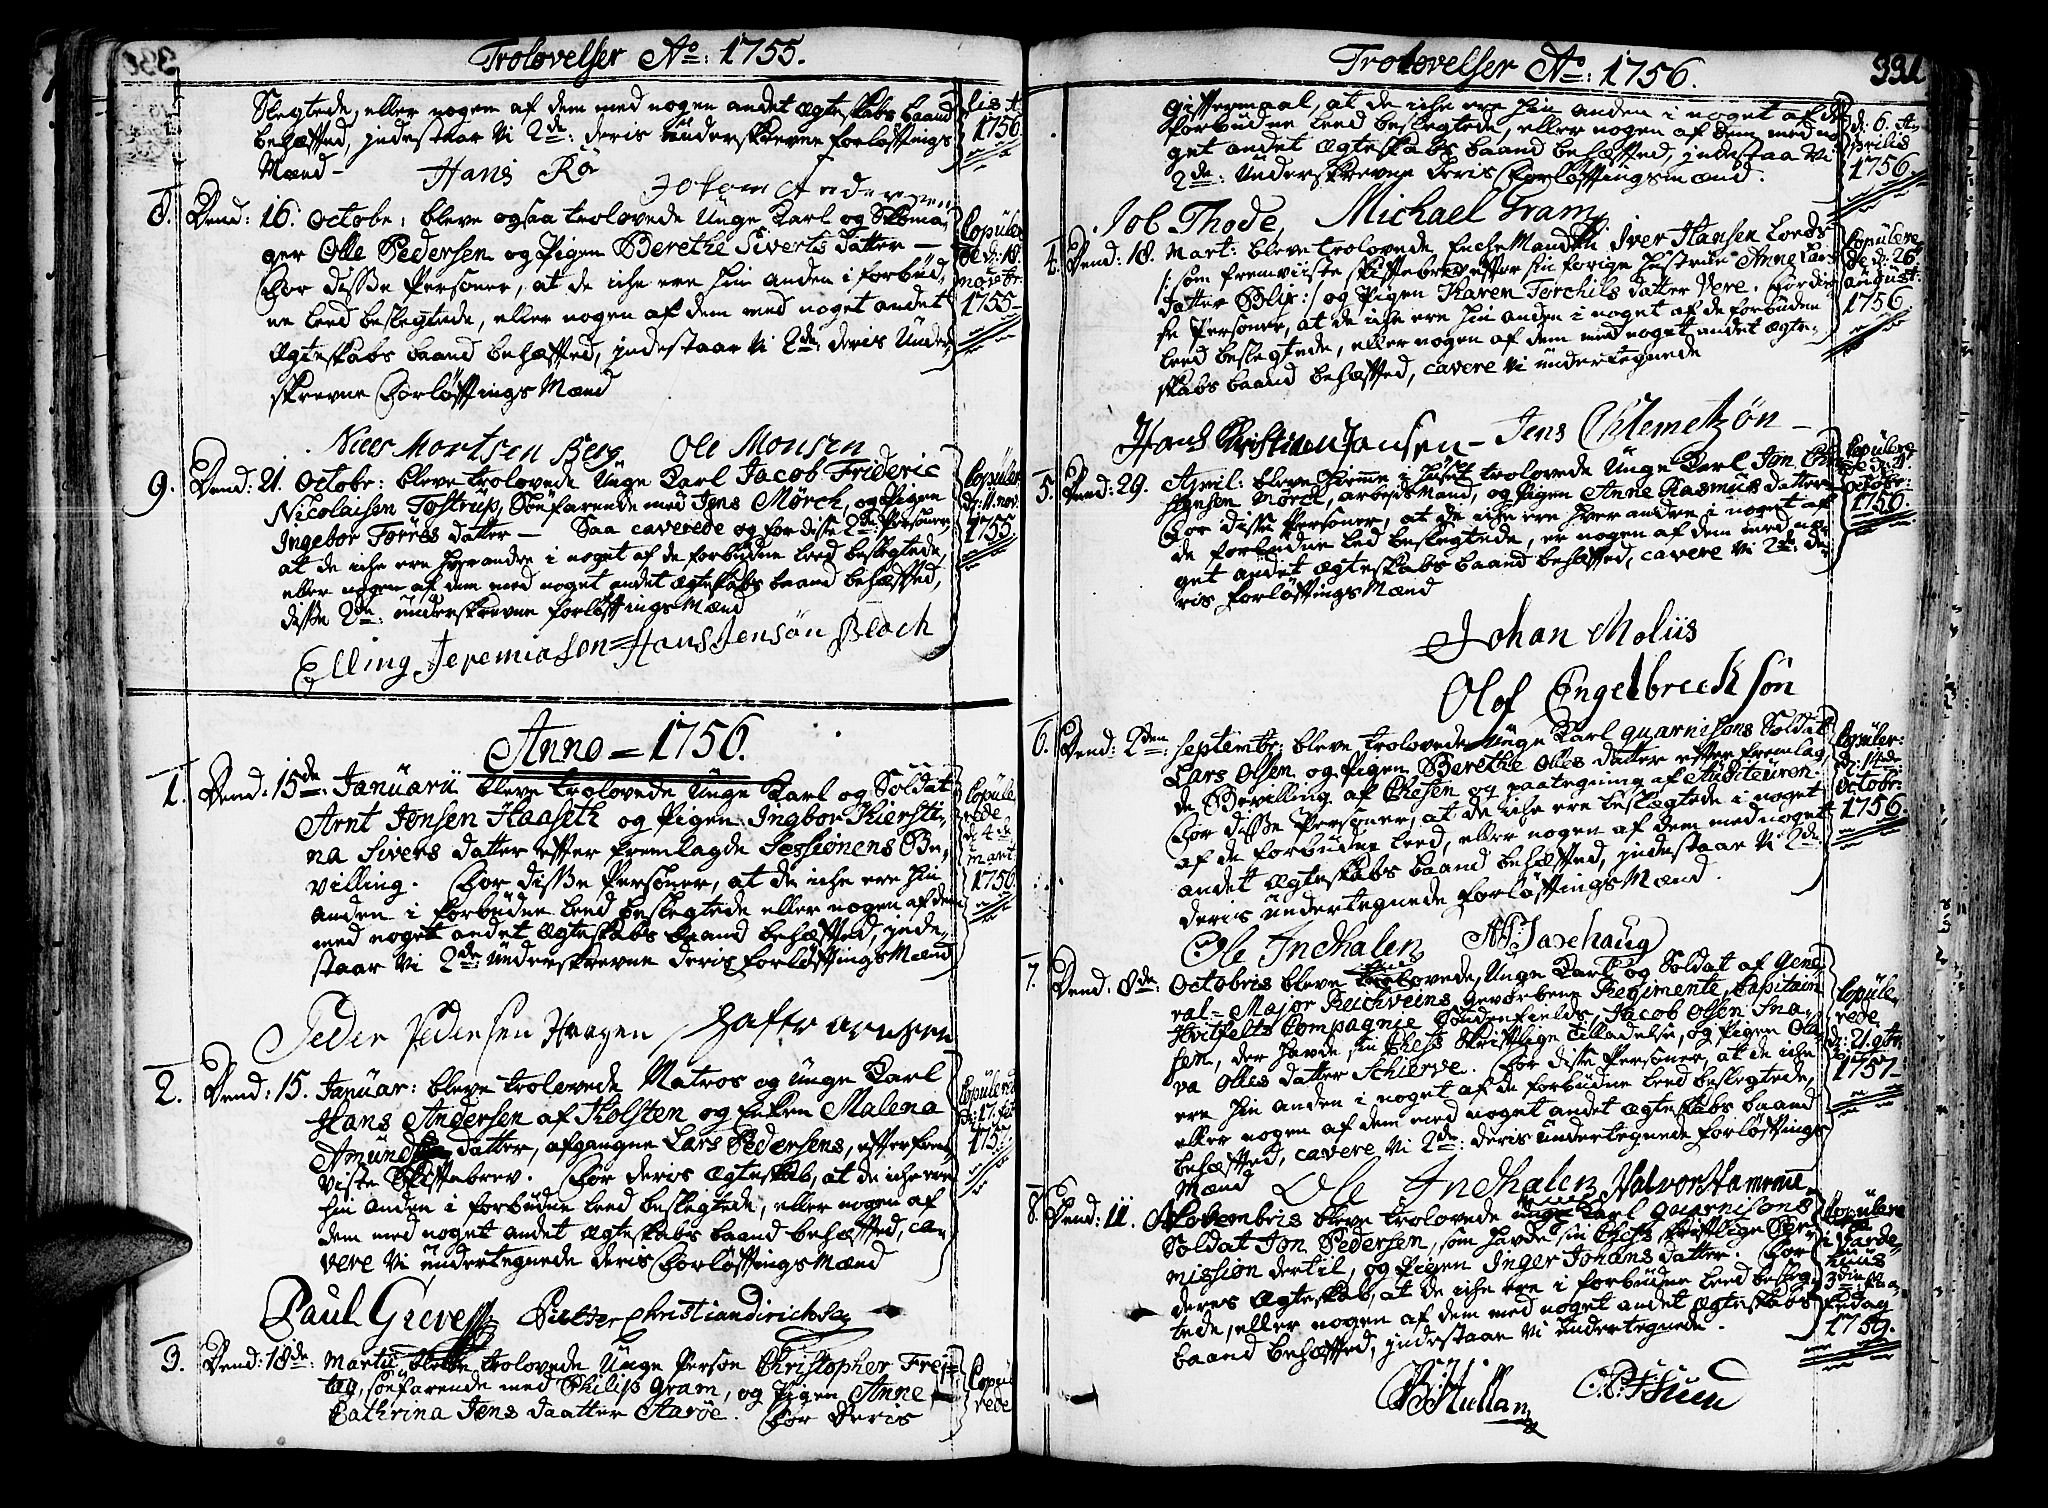 Trolovelser Ao: 1755.
Slegtede, eller nogen af dem med nogen andet Ægteskabs baand
behæfted, indestaar Vi 2de: deris Underskrevne Forløftnings
Mænd -
1756
Hans Rö
8. Dend: 16. Octobr: bleve ogsaa trolovede Unge Karl og Skoma-
ger Olle Pedersen og Pigen Berethe Siverts datter -
For disse Personer, at de iche ere hin anden i forbud-
ne leed beslegtede, eller nogen af dem med noget andet
Ægteskabs baand behæfted, indestaar Vi 2de: deris Under-
skrevne Forløftnings Mænd
Copuler
de d: 18
novbr:
1755
Niels Mortsen Berg Ole Monsen
9. Dend: 21. Octobr: bleve trolovede Unge Karl Jacob Frideric
Nicolaisen Tostrup, Söefarende med Jens Mörch, og Pigen
Ingebor Törres datter - Saa caverede og for disse 2de Personer
at de iche ere hverandre i noget af de forbudne leed beslegtede,
eller nogen af dem med noget andet Ægteskabs baand behæfted,
disse 2de: underskrevne Forløftnings Mænd
Copuler
d: 11. nov.
1755
Elling Jeremiason Hans Jensön Bloch
Anno = 1756.
1. Dend: 15de: Januarii bleve trolovede Unge Karl og Soldat
Arnt Jonsen Haaseth og Pigen Ingbor Kiersti-
na Sivers datter efter fremlagde Sessionens Be-
villing. For disse Personer, at de iche ere hin
anden i forbudne leed beslegtede eller nogen af dem
med noget andet Ægteskabs baand behæfted, inde-
staar Vi 2de: Underskrevne deris Forløftnings Mænd
Copule
rede
d: 4de
mart
1756
Peder Pedersen Haagen
2. Dend: 15. Januar: bleve trolovede Matros og Unge Karl
Hans Andersen af Holsten og Enken Malena
Amunds datter, afgangne Lars Pedersens, efter frem-
viste Skiftebrev. For deris Ægteskab, at de iche ere
hin anden i forbudne leed beslegtede, eller nogen af
dem med noget andet Ægteskabs baand behæfted, ca-
vere Vi undertegnede deris Forløftnings Mænd
Copulered
Paul Greve
3. Dend: 18de: Martii bleve trolovede Unge Person Christopher Frey-
tag, söefarende med Philip Gram, og Pigen Anne
Cathrina Jens daatter Aaröe. For deris
Copul
rede
Trolovelser Ao: 1756.
391
giftermaal, at de iche ere hin anden i noget af de
forbudne leed beslegtede, eller nogen af dem med no-
get andet Ægteskabs baand behæfted, indestaa Vi
2de: Underskrevne deris Forløftningsmænd.
d: 6. A-
prilis
1756
Job Thode, Michael Gram
4. Dend: 18. Mart: bleve trolovede Enche Manden Iver Hansen Lords
/: som fremviiste Skiftebrev efter sin forige Hustrue Anne Lars
datter Blix :/ og Pigen Karen Torchils datter Vere. For dis-
se Personer, at de iche ere hin anden i noget af de forbudene
leed beslegtede, eller nogen af dem med noget andet Ægte-
skabs baand behæfted, cavere Vi undertegnede
Copulere
de d: 26
august:
1756
Hans Christian Jansen - Jens Chlemetzön -
5. Dend: 29. April: bleve hieme i huset trolovede Unge Karl Jon Chri-
stensen Mörch, arbeids Mand, og Pigen Anne Rasmus datter
For disse Personer, at de iche ere hver andre i noget af
de forbudne led beslegtede, er nogen af dem med no-
get andet Ægteskabs baand behæfted, cavere Vi 2de: de-
ris Forløftnings Mænd
octobr:
1756
Johan Moliis
Olof Engelbreckt sön
6. Dend: 2den: Septembr: bleve trolovede Unge Karl quarnisons Soldat
Lars Olsen og Pigen Berethe Olles datter efter fremlag-
de Bevilling af Chefen og paategning af Auditeuren.
For disse Personer, at de iche ere beslægtede i noget
af de forbuden leed, eller nogen af dem med noget
andet Ægteskabs baand behæfted, indestaar Vi 2de:
deris undertegnede Forløftnings Mænd.
Copuler:
octobr:
1756
Ole Indhalen
7. Dend: 8de: Octobris bleve trolovede, Unge Karl og Soldat af Gene-
ral-Major Reichweins gevorbene Regimente, Capitain
Hvitfelts Compagnie Söndenfields, Jacob Olsen Ina-
sen, der havde sin Chefs Skriftlige tilladelse, og Pigen Ole-
va Olles datter Schierve. For disse Personer, at de iche
ere hin anden i noget af de forbudne leed beslegtede,
eller nogen af dem med noget andet Ægteskabs baand
behæfted, cavere Vi 2de: deris undertegnede Forløftnings
Mænd
Copule-
rede
1757
Ole Indhalen Halvor Hammer
8. Dend: 11. Novembris bleve trolovede unge Karl Quarnisons
Soldat Jon Pedersen, som havde sin Chefs skriftlige Per-
mission dertil, og Pigen Inger Johans datter. For
deres Ægteskab, at de iche ere i forbudne leed besleg-
tede, eller nogen af dem med noget andet Ægteskabs
baand behæfted, indestaar Vi Undertegnede.
Copulere
1759.